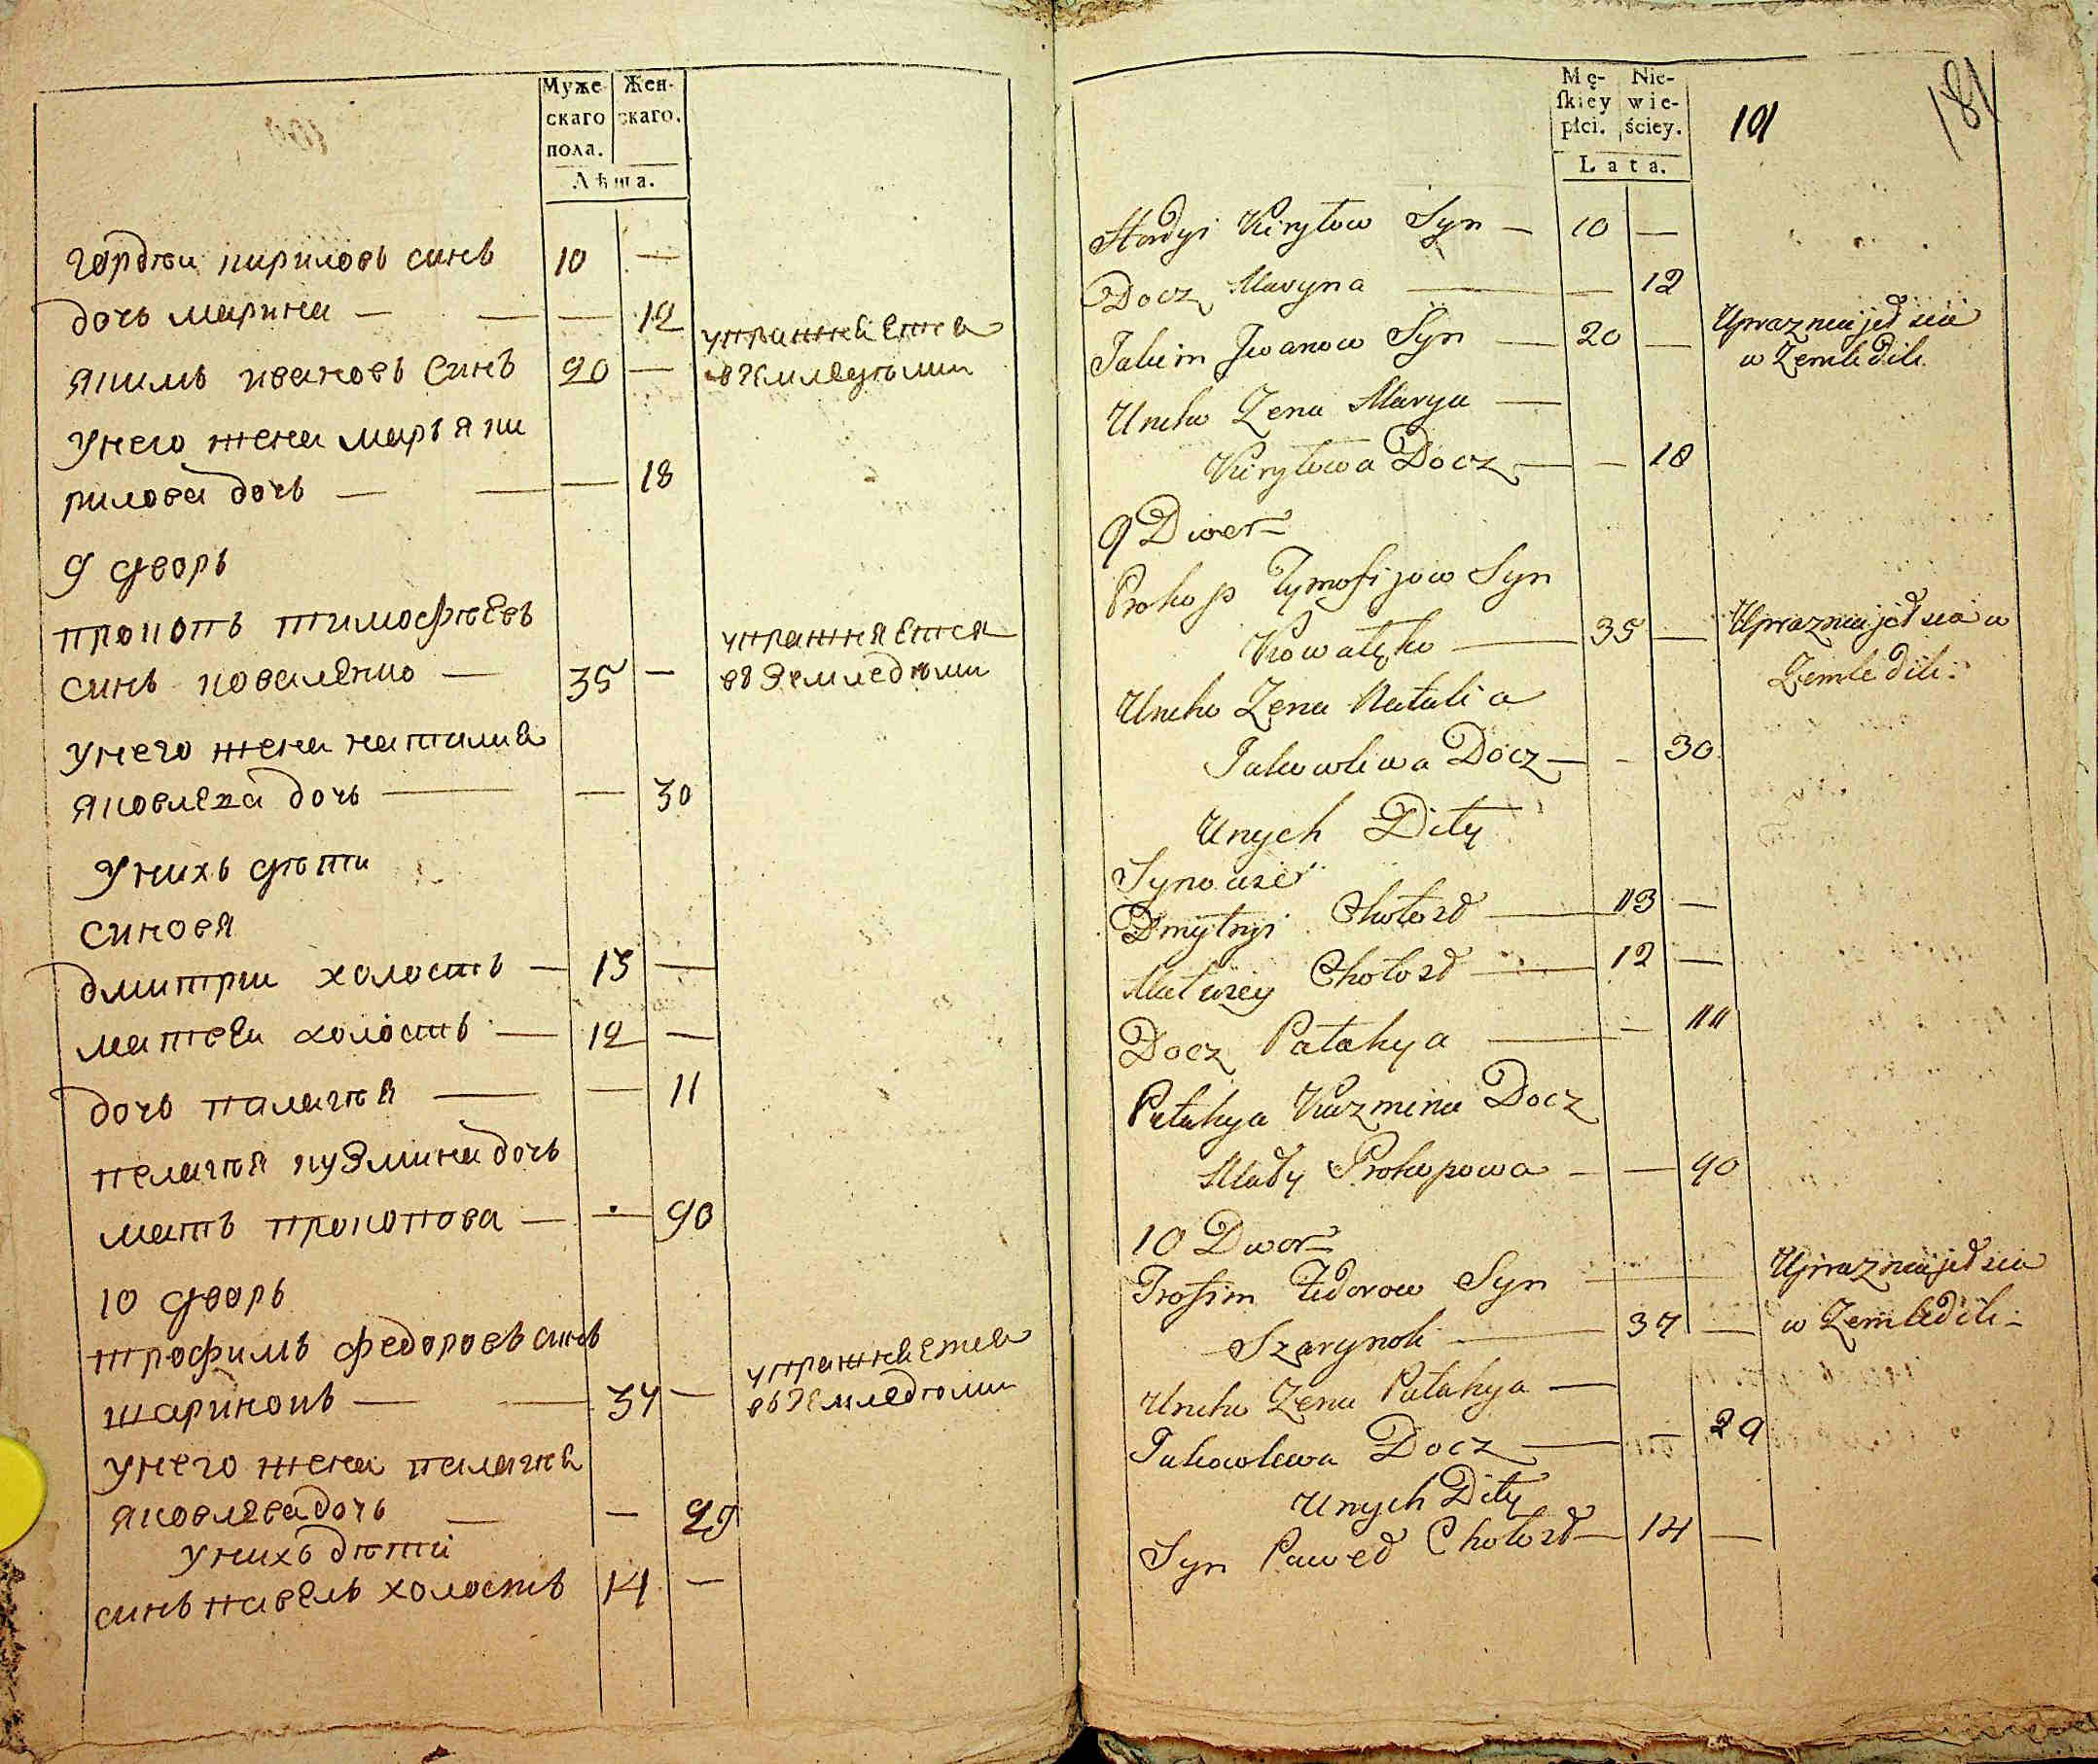 Муже- Жен-
скаго скаго.
пола.
Лѣта.
гордѣи кириловъ синъ 10 —
дочь марина — — — 12
якимъ ивановъ синъ 20 — упражняется
в земледѣлии
у него жена марья ки
рилова дочь — — — 18
9 дворъ
прокопъ тимофѣевъ
синъ коваленко — 35 — упражняется
въ земледѣлии
у него жена наталия
яковлева дочь — — 30
у нихъ дѣти
синовя
дмитрии холостъ — 13 —
матвеи холостъ — 12 —
дочь палагѣя — — 11
пелагѣя кузмина дочь
мать прокопова — — 90
10 дворъ
трофимъ федоровъ синъ
шаринокъ — — 37 — упражняется
въ земледѣлии
у него жена палагѣя
яковлева дочь — — 29
у нихъ дѣти
синъ павелъ холостъ 14 —
Mę- Nie-
skiey wie-
płci. ściey.
Lata.
101
181
Hordyi Kiryłow Syn — 10 —
Docz Maryna — — 12
Jakim Jwanow Syn — 20 — Uprazniajet sia
w Zemledili
Uneho Zena Marya —
Kiryłowa Docz — — 18
9 Dwor
Prokop Tymofijow Syn
Kowalęko — 35 — Uprazniajet sia w
Zemledili
Uneho Zena Natalia
Jakowliwa Docz — - 30
Unych Dity
Synowie
Dmytryi Chołost — 13 —
Matwiey Chołost — 12 —
Docz Pałahya — — 11
Pałahya Kuzmina Docz
Maty Prokopowa — — 90
10 Dwor
Trofim Fedorow Syn — Uprazniajet sia
Szarynok — 37 — w Zemledili
Uneho Zena Pałahya —
Jakowlewa Docz — — 29
Unych Dity
Syn Paweł Chołost — 14 —